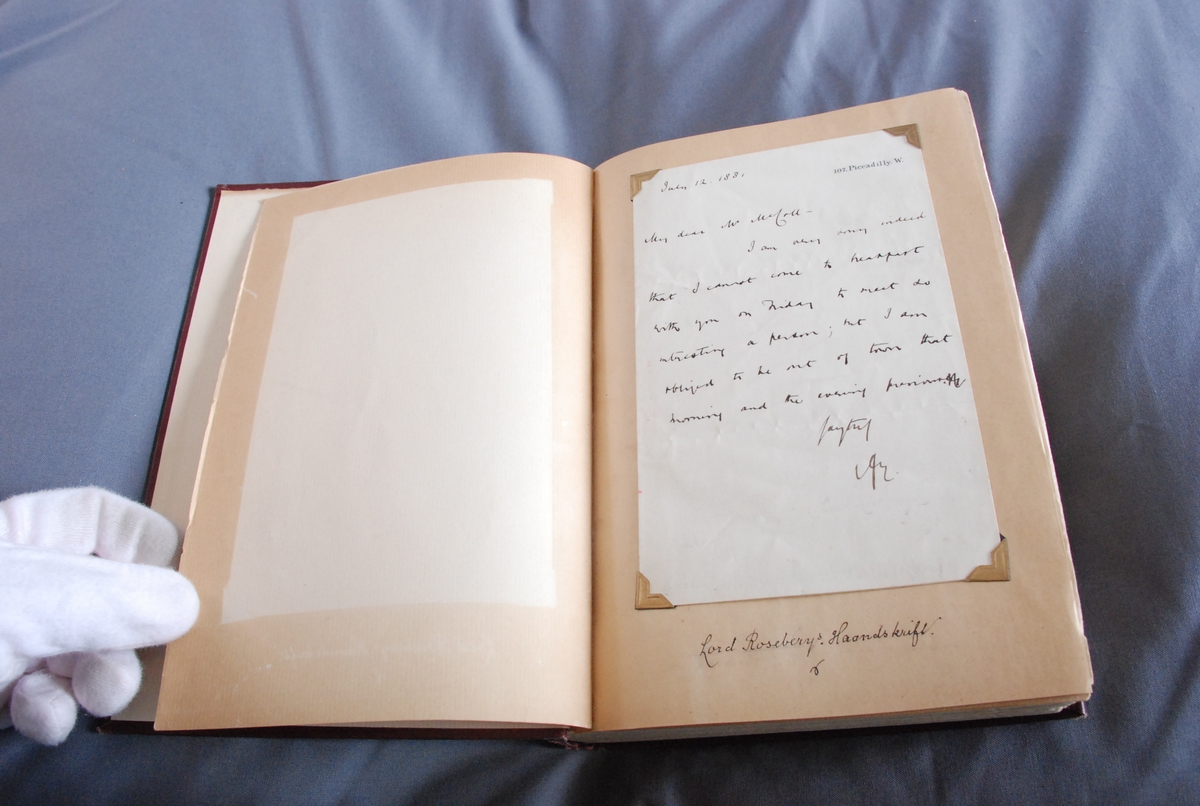 107, Piccadilly. W.
July 12. 1881
My dear Mr McColl -
I am very sorry indeed
that I cannot come to breakfast
with you on Friday to meet so
interesting a person; but I am
obliged to be out of town that
morning and the evening previously
Lord Roseberys Haandskrift.